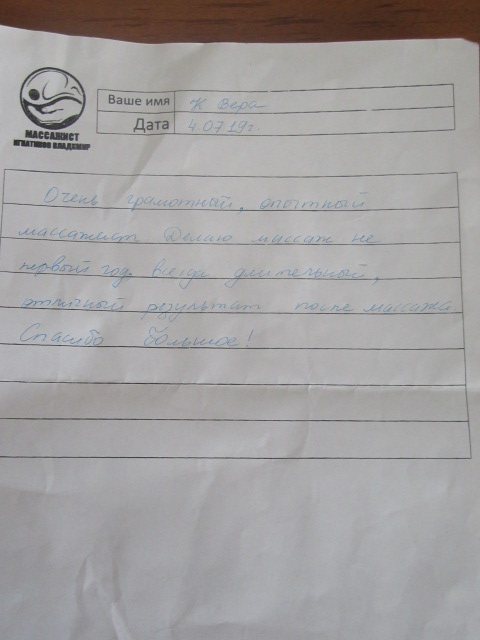 МАССАЖИСТ
ИГНАТИКОВ ВЛАДИМИР
Ваше имя К Вера
Дата 4.07.19г.
Очень грамотный, опытный
массажист. Делаю массаж не
первый год. Всегда длительный,
отличный результат после массажа
Спасибо большое!